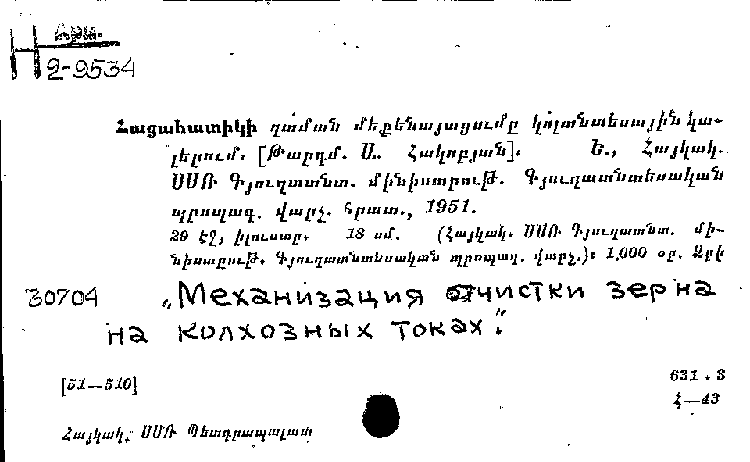 Арм.
Н 2-9534
Հացահատիկի զտման մեքենայացումը կոլտնտեսային կա-
լերում. [Թարգմ. Ա. Հակոբյան]. Ե., Հայկակ.
ՍՍՌ Գյուղատնտ. մինիստրութ. Գյուղատնտեսական
պրոպագ. վարչ. հրատ., 1951.
29 էջ, իլուստր. 18 սմ. (Հայկակ. ՍՍՌ Գյուղատնտ. մի-
նիստրութ. Գյուղատնտեսական պրոպագ. վարչ.)։ 1,000 օր. Ձրի
30704 „Механизация отчистки зерна
на колхозных токах".
[51—510]
631.3
Հ—43
Հայկակ. ՍՍՌ Պետգրապալատ